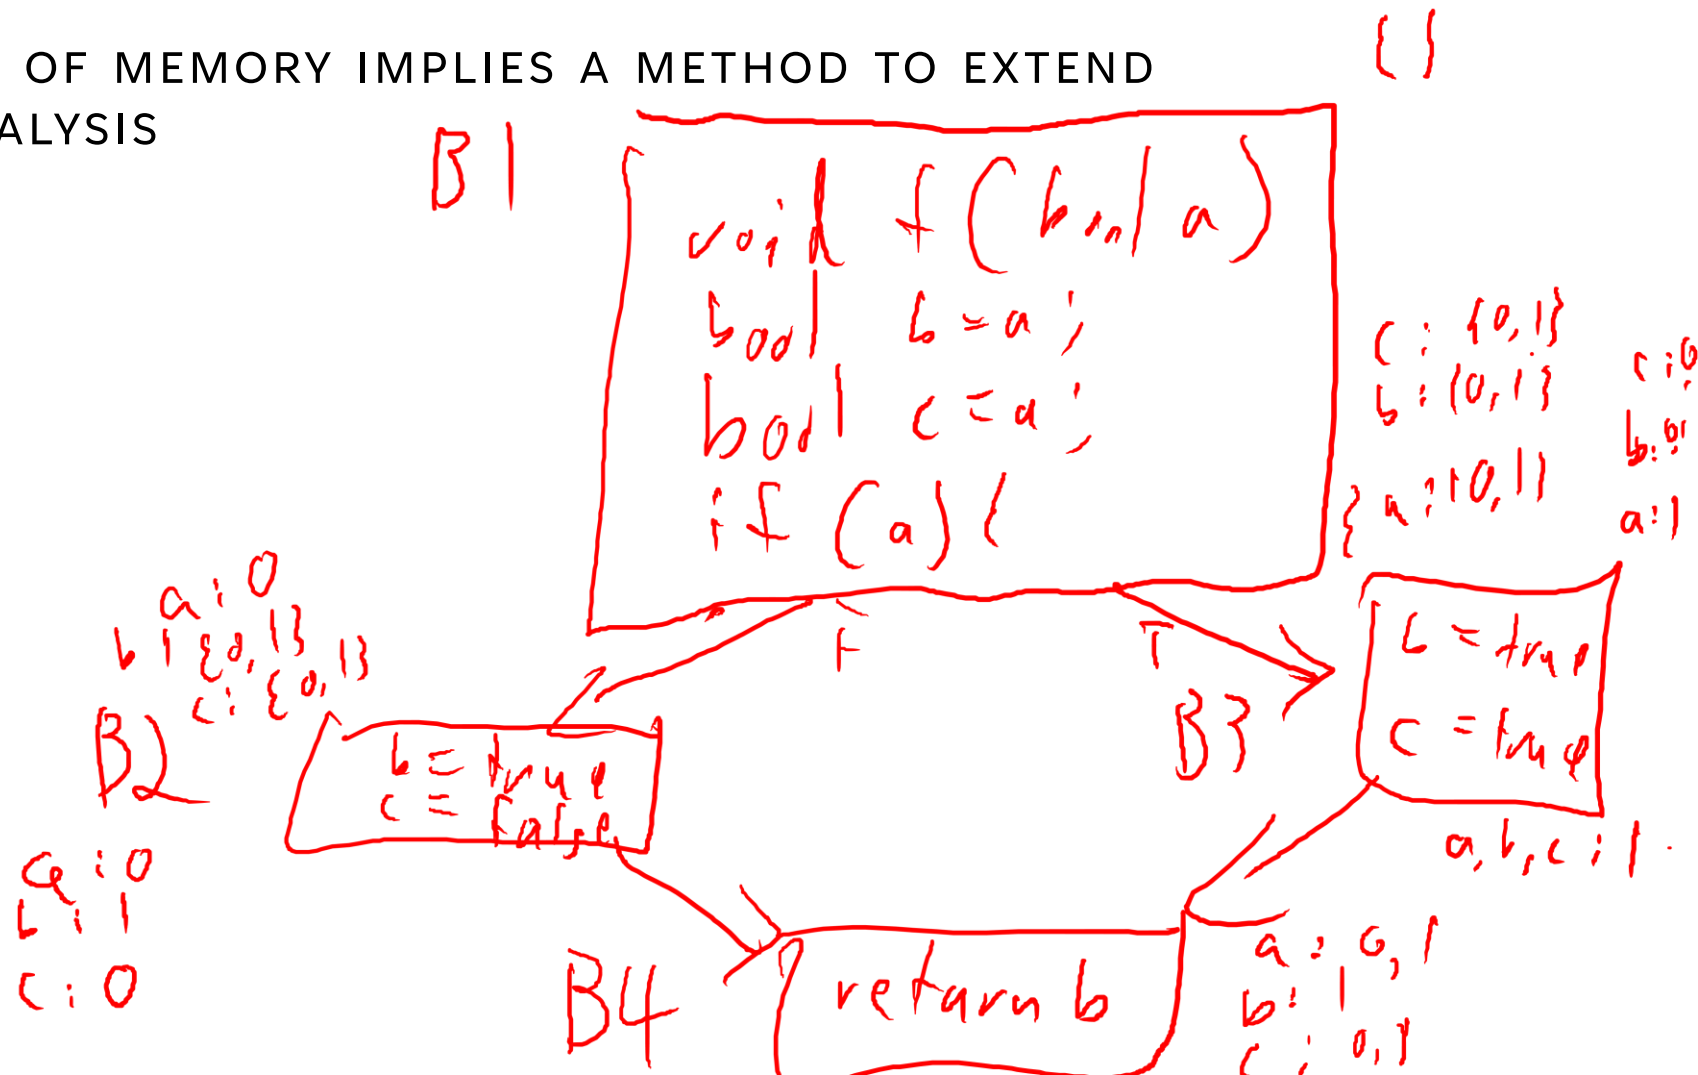 OF MEMORY IMPLIES A METHOD TO EXTEND
ALYSIS
{ }
B1
void f(bool a)
bool b = a;
bool c = a;
if (a) {
c: {0,1}
b: {0,1}
{ a: {0,1}
c:0
b:0
a:1
F
T
a:0
b: {0,1}
c: {0,1}
B2
b = true
c = false
a:0
b:1
c:0
B3
b = true
c = true
a,b,c:1
B4
return b
a: 0,1
b: 1
c: 0,1